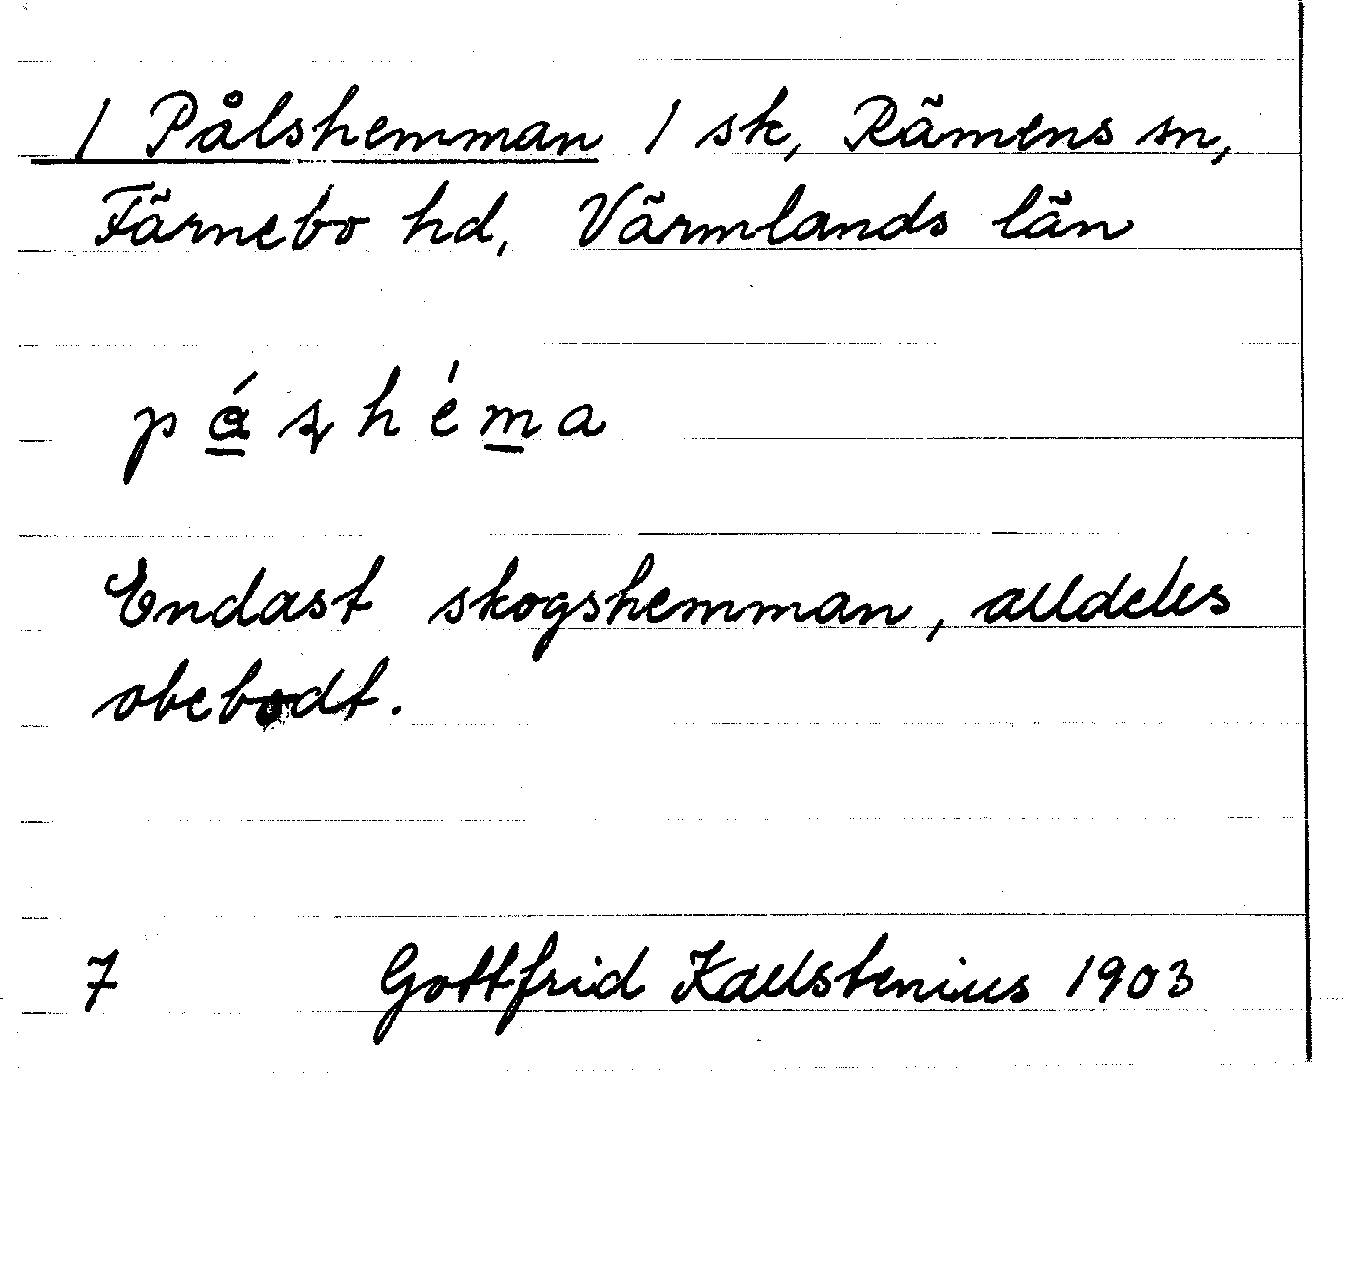 / Pålshemman / sk, Rämens sn,
Färnebo hd, Värmlands län
Endast skogshemman, alldeles
obebodt.
7 Gottfrid Kallstenius 1903